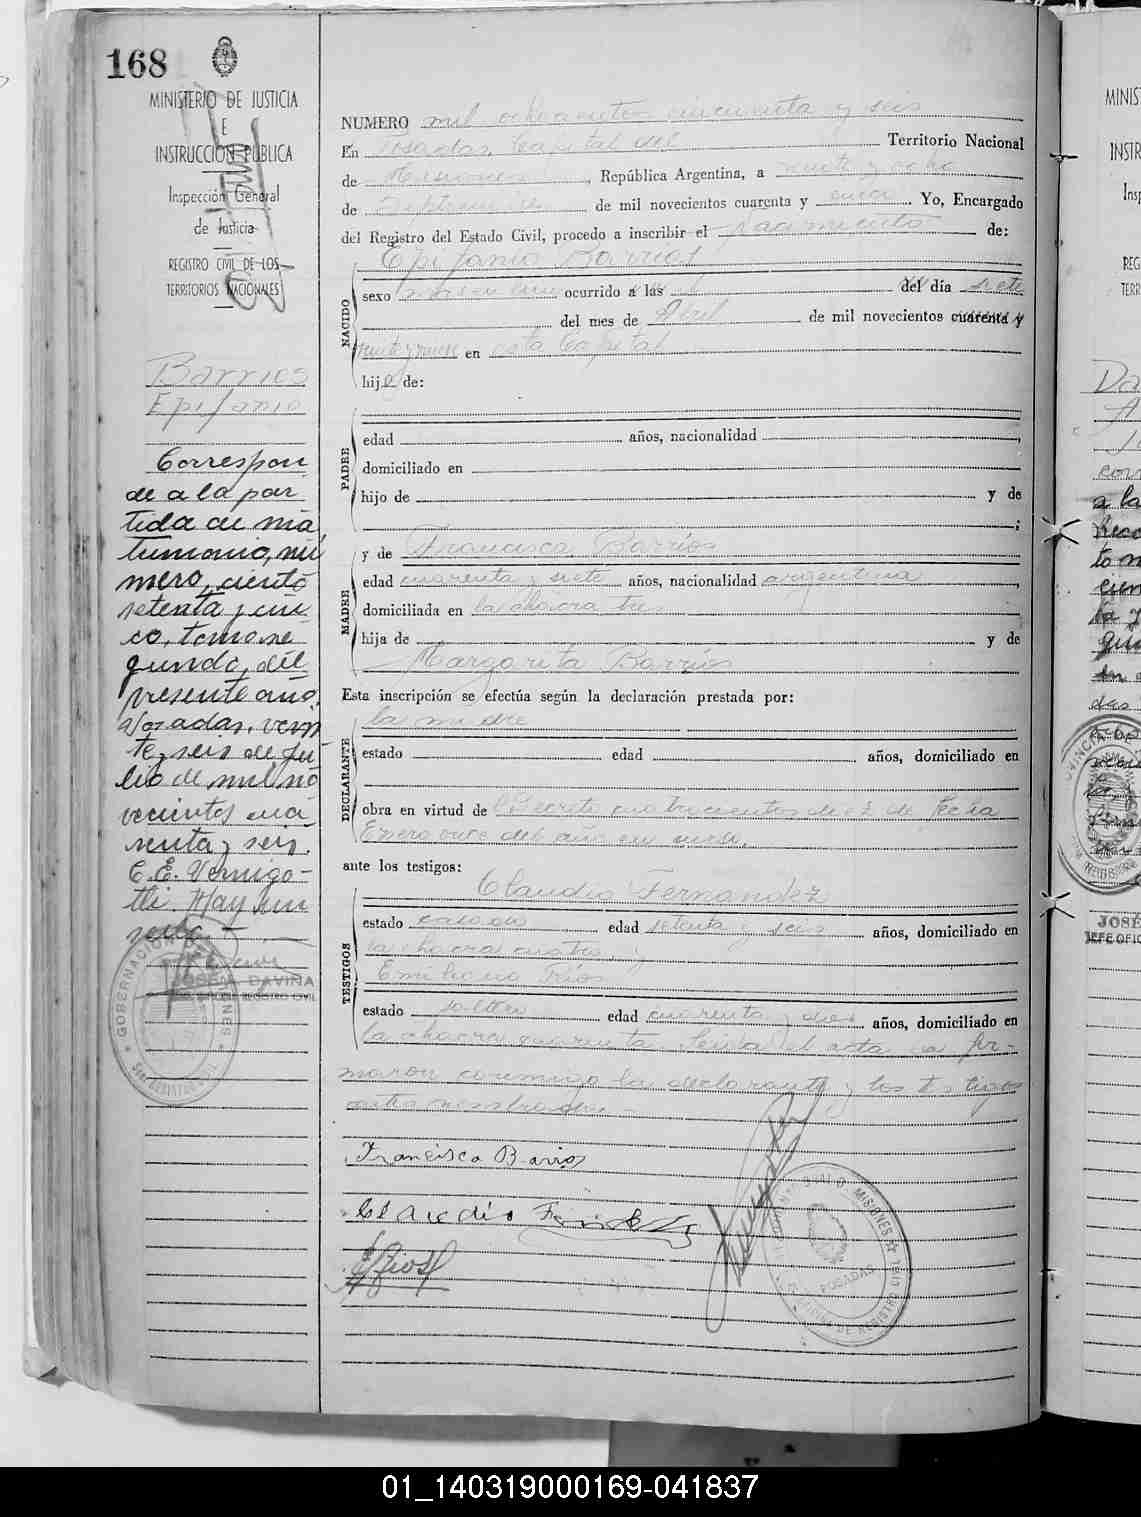 168
MINISTERIO DE JUSTICIA
E
INSTRUCCIÓN PÚBLICA
Inspección General
de Justicia
REGISTRO CIVIL DE LOS
TERRITORIOS NACIONALES
Barrios
Epifanio
Correspon
de a la par
tida de ma
trimonio, nú
mero, ciento
setenta y cin
co, tomo se
gundo, del
presente año.
Posadas, vein
te y seis de ju
lio de mil no
vecientos cua
renta y seis.
C. E. Vernigo-
tti. Hay un
sello
DAVIÑA
REGISTRO CIVIL
NUMERO mil ochocientos cincuenta y seis
En Posadas, Capital del Territorio Nacional
de Misiones, República Argentina, a veinte y ocho
de Septiembre de mil novecientos cuarenta y cinco. Yo, Encargado
del Registro del Estado Civil, procedo a inscribir el Nacimiento de:
Epifanio Barrios
NACIDO
sexo masculino ocurrido a las del día siete
del mes de Abril de mil novecientos cuarenta y
veinte y nueve en esta Capital
hijo de:
PADRE
edad años, nacionalidad ,
domiciliado en
hijo de y de
;
MADRE
y de Francisca Barrios
edad cuarenta y siete años, nacionalidad argentina,
domiciliada en la chacra tres
hija de y de
Margarita Barrios
Esta inscripción se efectúa según la declaración prestada por:
DECLARANTE
la madre
estado edad años, domiciliado en
obra en virtud de Decreto cuatrocientos diez de fecha
Enero once del año en curso.
ante los testigos:
TESTIGOS
Claudio Fernandez
estado casado edad setenta y seis años, domiciliado en
la chacra cuatro y
Emiliano Ríos
estado soltero edad cuarenta y dos años, domiciliado en
la chacra cuarenta. Leida el acta la fir-
maron conmigo la declarante y los testigos
antes nombrados.-
Francisca Barrios
Claudio Fernandez
E Rios
MISIONES
POSADAS
OFICINA DE REGISTRO
GOBERNACION
MINIS
INSTR
Insp
REG
TERR
JOSÉ
JEFE OFIC
01_140319000169-041837